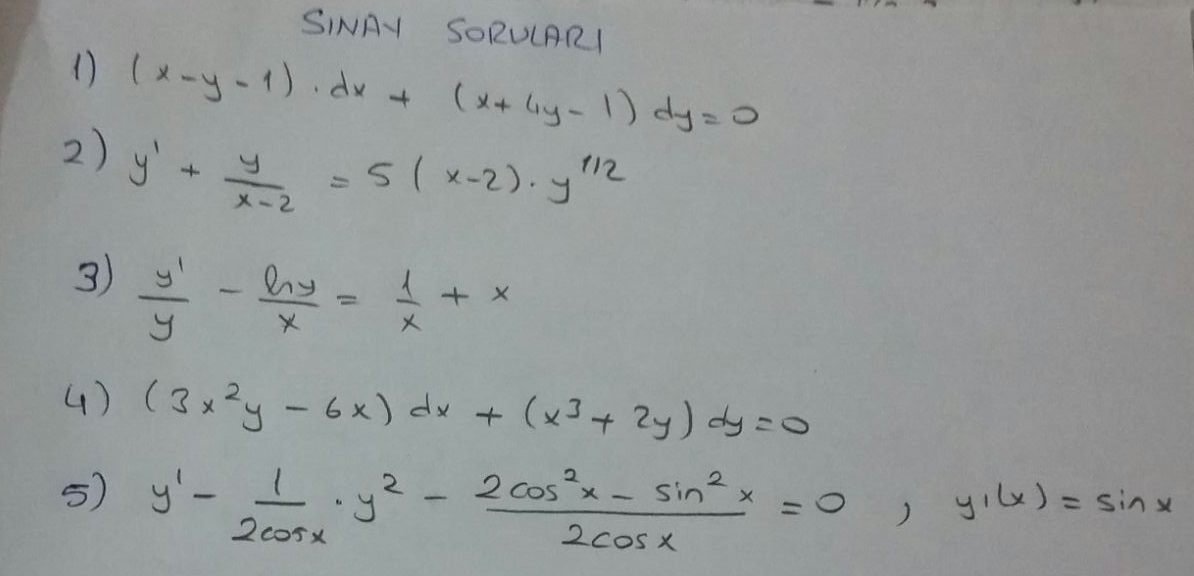 SINAV SORULARI
1) (x-y-1).dx + (x+4y-1) dy=0
2) y' + y/(x-2) = 5(x-2).y^1/2
3) y'/y - lny/x = 1/x + x
4) (3x²y - 6x) dx + (x³+2y) dy=0
5) y' - 1/(2cosx) . y² - (2cos²x - sin²x)/(2cosx) = 0 , y₁(x) = sinx